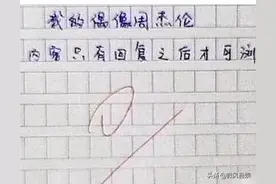 我的偶像周杰伦
内容只有回复之后才可浏
头条@教风段段